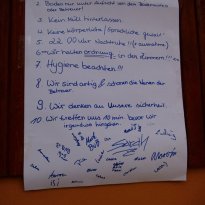 2. Baden nur unter Aufsicht von den Bademeistern
oder Betreuer!
3 Kein Müll hinterlassen
4 Keine körperliche / sprachliche gewalt
5 22.00 Uhr Nachtruhe (Ausnahme)
6 wir halten ordnung in den Zimmern!!!
7 Hygiene beachten!!!
8 Wir sind artig & schonen die Nerven der
Betreuer.
9 Wir denken an unsere sicherheit.
10 Wir treffen uns 10 min bevor wir
irgendwo hingehen.